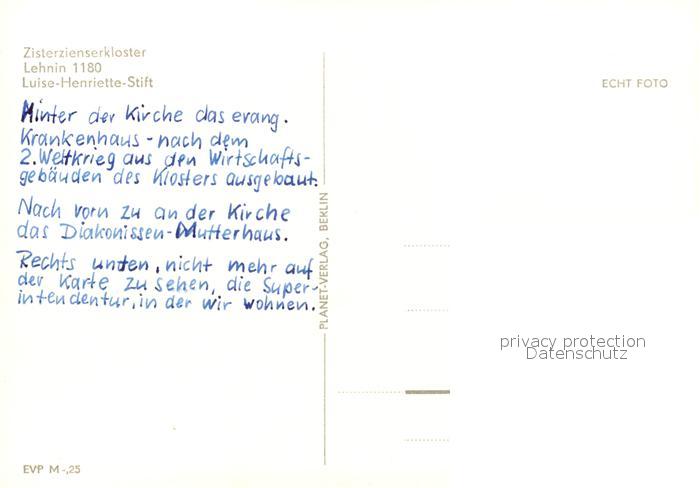 Zisterzienserkloster
Lehnin 1180
Luise-Henriette-Stift
ECHT FOTO
Hinter der Kirche das evang.
Krankenhaus - nach dem
2. Weltkrieg aus den Wirtschafts-
gebäuden des Klosters ausgebaut.
Nach vorn zu an der Kirche
das Diakonissen-Mutterhaus.
Rechts unten, nicht mehr auf
der Karte zu sehen, die Super-
intendentur, in der wir wohnen.
PLANET-VERLAG, BERLIN
privacy protection
Datenschutz
EVP M -,25